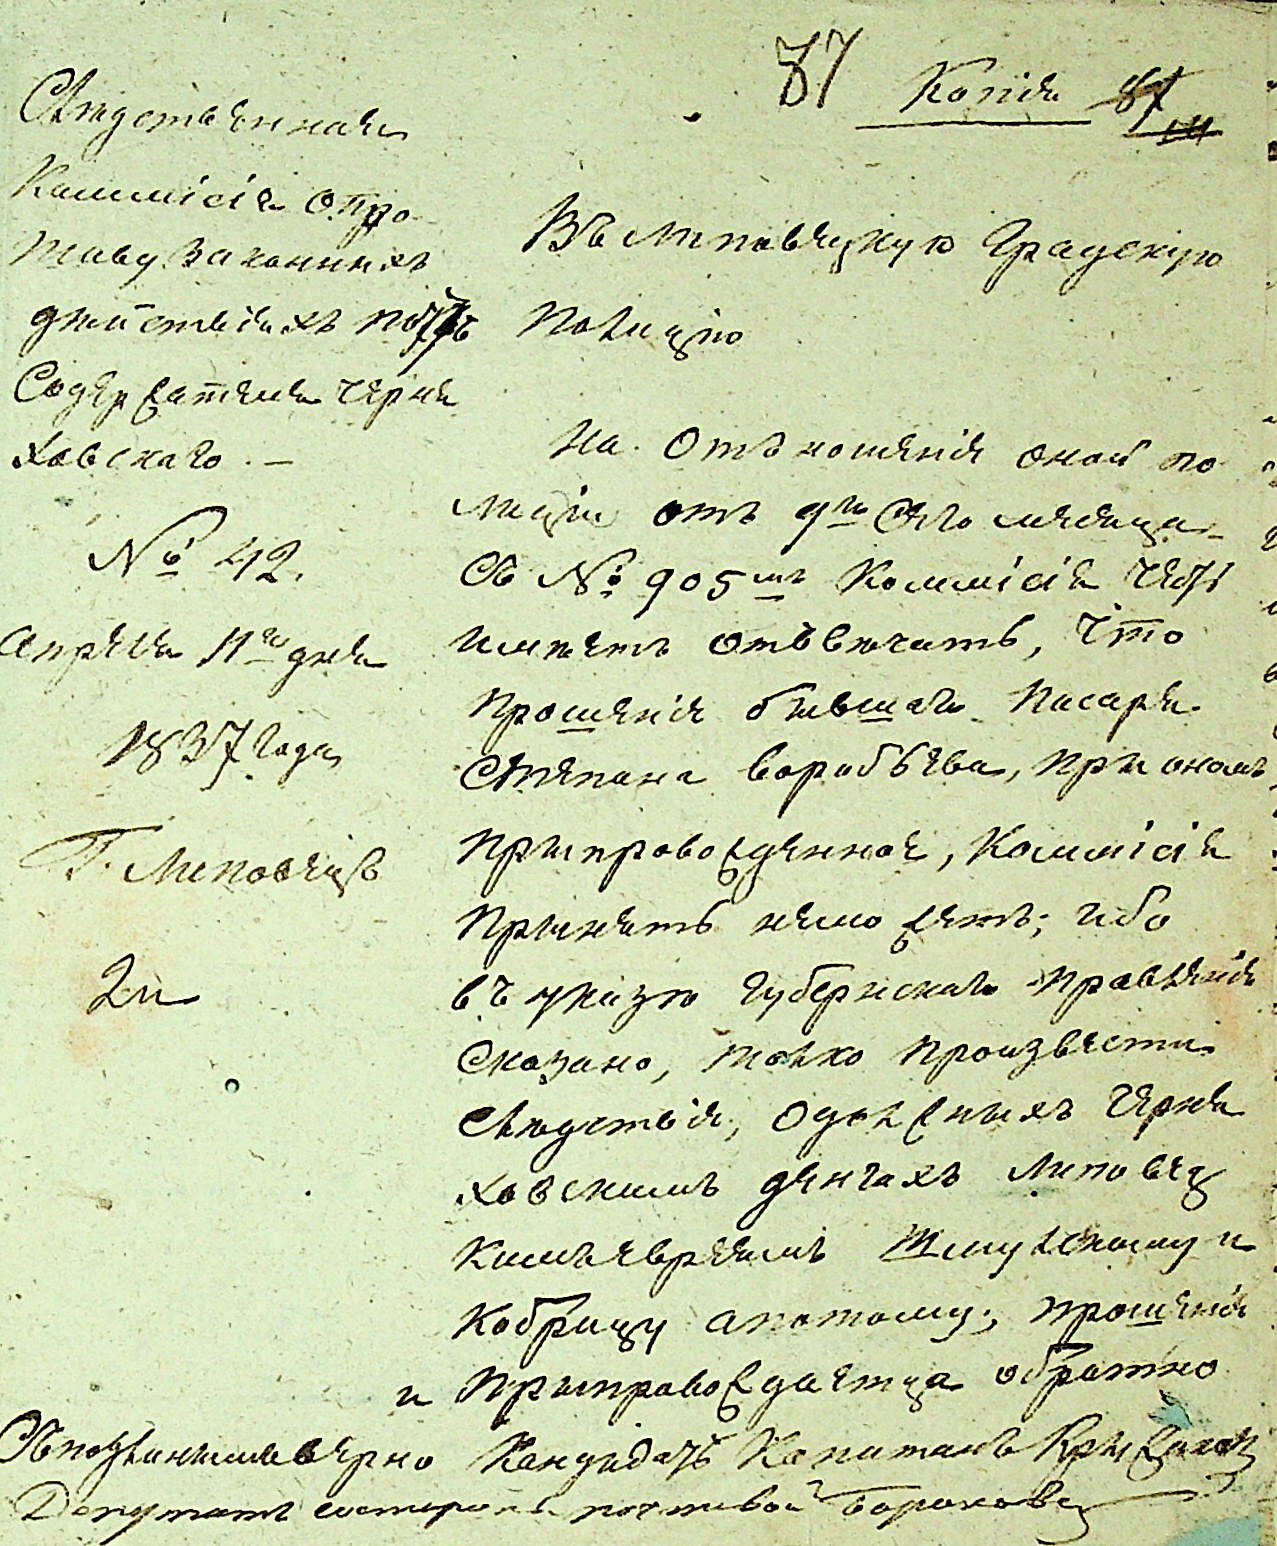 87 Копія 87
Следственная
Коммисія о про
тиву законныхъ
действіяхъ почтъ
Содержателя Черня
ховскаго. —
№ 42.
Апреля 11го дня
1837 Года
Г. Липовецъ
Въ Липовецкую Градскую
Полицію
На Отъношенія оной по
лиціи отъ 9го сего месяца
съ № 905мъ Коммисія честь
имеетъ отъвечать, что
прошенія бывшаго Писаря
Степана Воробьева, при ономъ
припровожденное, Коммисія
принять неможетъ; ибо
въ указе Губернскаго правленія
сказано, толко произвести
следствія, одолжныхъ Черня
ховскимъ денгахъ Липовец
кимъ евреямъ Шмулскому и
Кобрицу апотому, прошенія
и припровождается обратно
Съподлиннымъ верно Кандидатъ Капитанъ
Депутатъ состороны почтовой